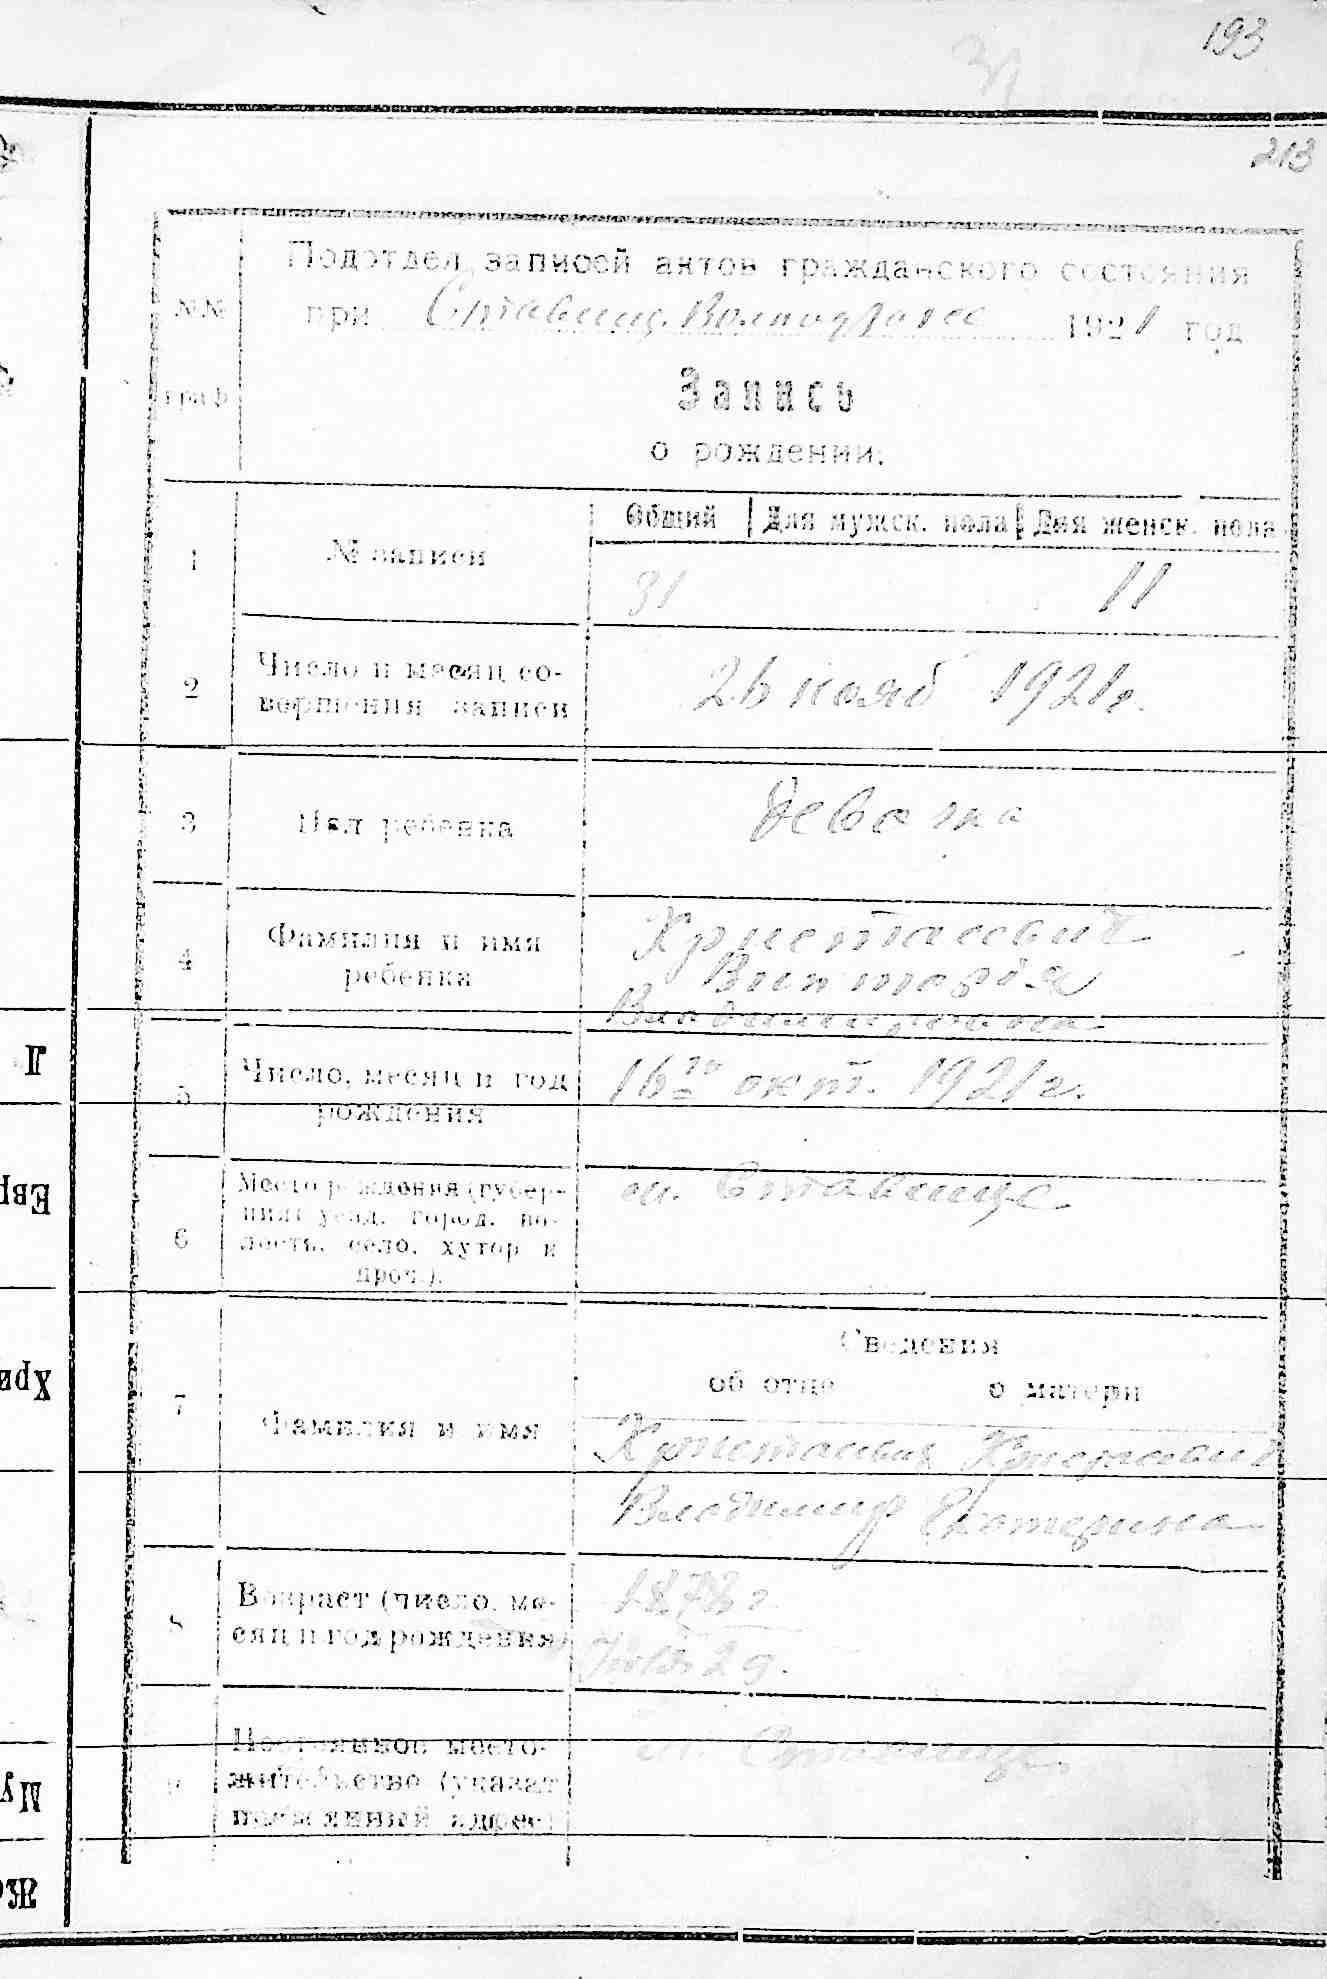 193
31
213
Подотдел записей актов гражданского состояния
№№ при Ставищ. 1921 год
граф
Запись
о рождении:
Общий Для мужск. пола Для женск. пола
1 № записи 31 11
2 Число и месяц со-
вершения записи 26 нояб 1921 г.
3 Пол ребенка девочка
4 Фамилия и имя
ребенка
Христасевич
Виктория
Владимировна
5 Число, месяц и год
рождения 16го окт. 1921 г.
6 Место рождения (губер-
ния, уезд, город, во-
лость, село, хутор и
проч.).
м. Ставище
Сведения
об отце о матери
7 Фамилия и имя
Владимир Екатерина
8 Возраст (число, ме-
сяц и год рождения)
1878 г.
9 Постоянное место-
жительство (указат
подлинный адрес)
м. Ставище